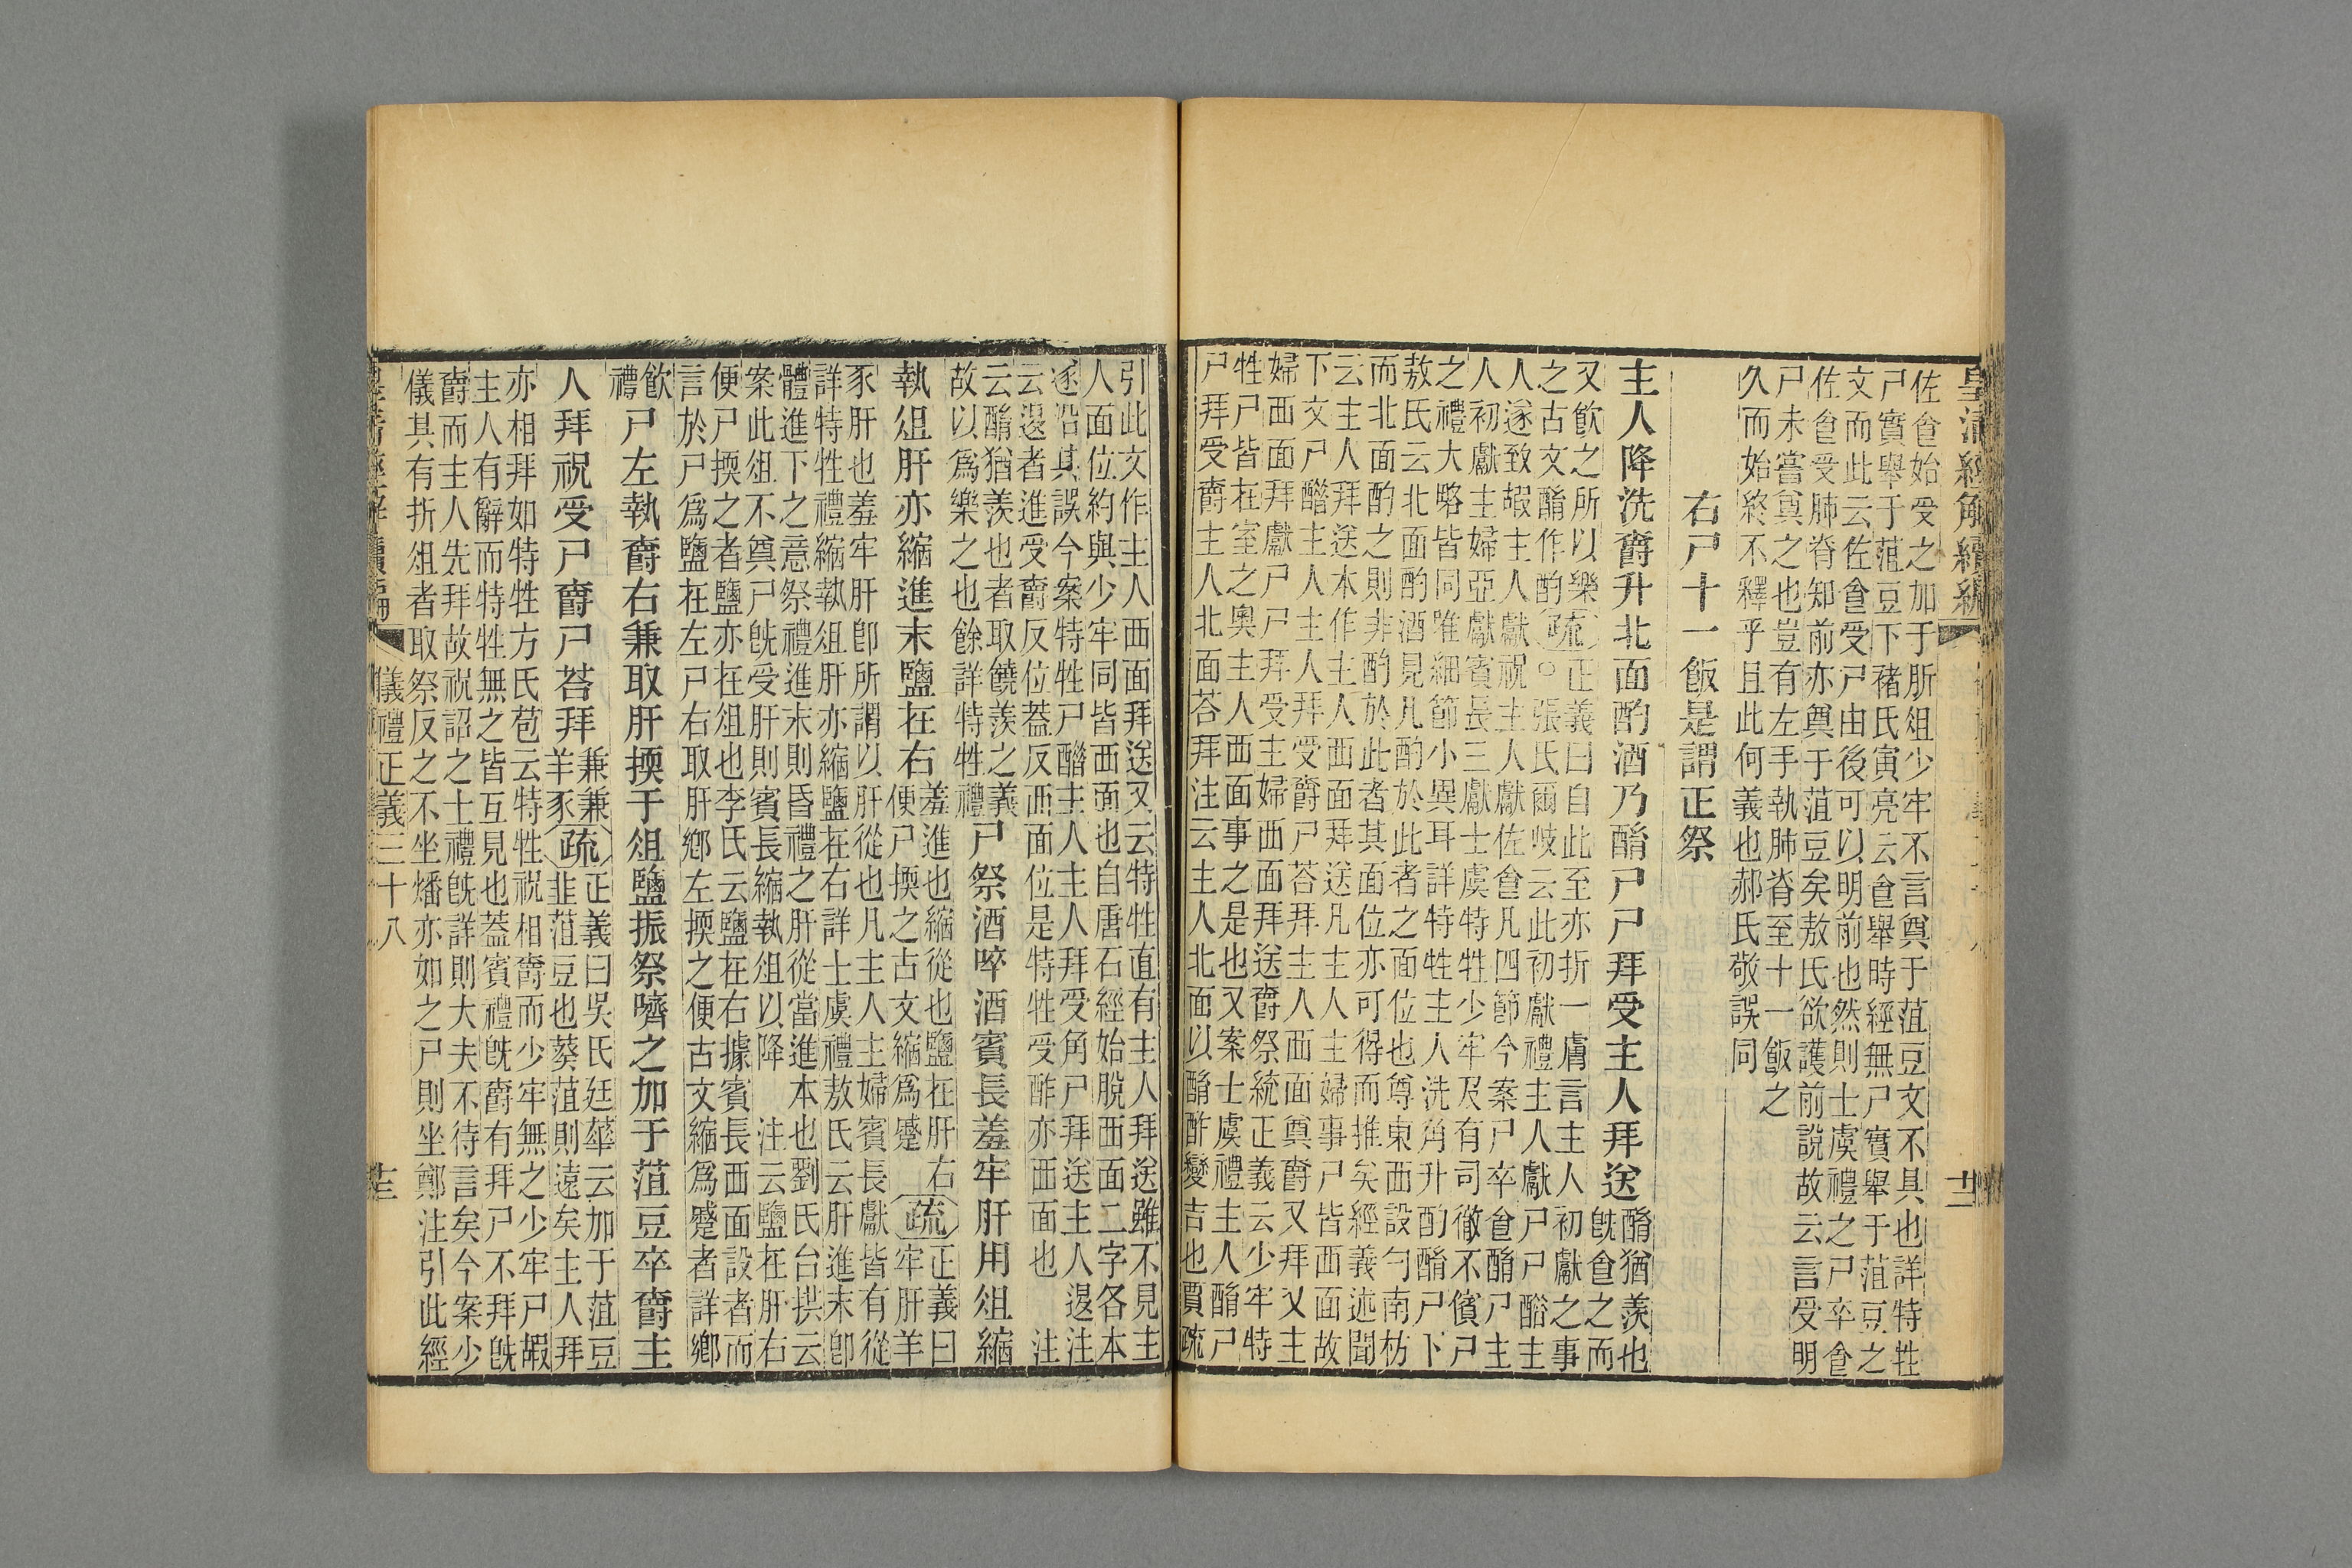 皇清經解續編
佐食始受之加于肵俎少牢不言奠于菹豆文不具也詳特牲
尸實舉于菹豆下褚氏寅亮云食舉時經無尸實舉于菹豆之
文而此云佐食受尸由後可以明前也然則士虞禮之尸卒食
佐食受肺脊知前亦奠于菹豆矣敖氏欲護前說故云言受明
尸未嘗奠之也豈有左手執肺脊至十一飯之
久而始終不釋乎且此何義也郝氏敬誤同
右尸十一飯是謂正祭
主人降洗爵升北面酌酒乃酳尸尸拜受主人拜送
酳猶羨也
既食之而
又飮之所以樂
之古文酳作酌
疏
正義曰自此至亦折一膚言主人初獻之事
○張氏爾岐云此初獻禮主人獻尸尸酢主
人遂致嘏主人獻祝主人獻佐食凡四節今案尸卒食酳尸主
人初獻主婦亞獻賓長三獻士虞特牲少牢及有司徹不儐尸
之禮大略皆同唯細節小異耳詳特牲主人洗角升酌酳尸下
敖氏云北面酌酒見凡酌於此者之面位也尊東西設勺南枋
而北面酌之則非酌於此者其面位亦可得而推矣經義述聞
云主人拜送本作主人西面拜送凡主人主婦事尸皆西面故
下文尸醋主人主人拜受爵尸荅拜主人西面奠爵又拜主
婦西面拜獻尸尸拜受主婦西面拜送爵祭統正義云少牢特
牲尸皆在室之奧主人西面事之是也又案士虞禮主人酳尸
尸拜受爵主人北面荅拜注云主人北面以酳酢變吉也賈疏
引此文作主人西面拜送又云特牲直有主人拜送雖不見主
人面位約與少牢同皆西面也自唐石經始脫西面二字各本
遂沿其誤今案特牲尸醋主人主人拜受角尸拜送主人退注
云退者進受爵反位葢反西面位是特牲受酢亦西面也　注
云酳猶羨也者取饒羨之義
故以爲樂之也餘詳特牲禮
尸祭酒啐酒賓長羞牢肝用俎縮
執俎肝亦縮進末鹽在右
羞進也縮從也鹽在肝右
便尸㨎之古文縮爲蹙
疏
正義曰
牢肝羊
豕肝也羞牢肝卽所謂以肝從也凡主人主婦賓長獻皆有從
詳特牲禮縮執俎肝亦縮鹽在右詳士虞禮敖氏云肝進末卽
體進下之意祭禮進末則昏禮之肝從當進本也劉氏台拱云
案此俎不奠尸旣受肝則賓長縮執俎以降　注云鹽在肝右
便尸㨎之者鹽亦在俎也李氏云鹽在右據賓長西面設者而
言於尸爲鹽在左尸右取肝鄉左㨎之便古文縮爲蹙者詳鄉
飮
禮
尸左執爵右兼取肝㨎于俎鹽振祭嚌之加于菹豆卒爵主
人拜祝受尸爵尸荅拜
兼兼
羊豕
疏
正義曰吳氏廷華云加于菹豆
韭菹豆也葵菹則遠矣主人拜
亦相拜如特牲方氏苞云特牲祝相爵而少牢無之少牢尸嘏
主人有辭而特牲無之皆互見也葢賓禮旣爵有拜尸不拜旣
爵而主人先拜故祝詔之士禮旣詳則大夫不待言矣今案少
儀其有折俎者取祭反之不坐燔亦如之尸則坐鄭注引此經
儀禮正義三十八